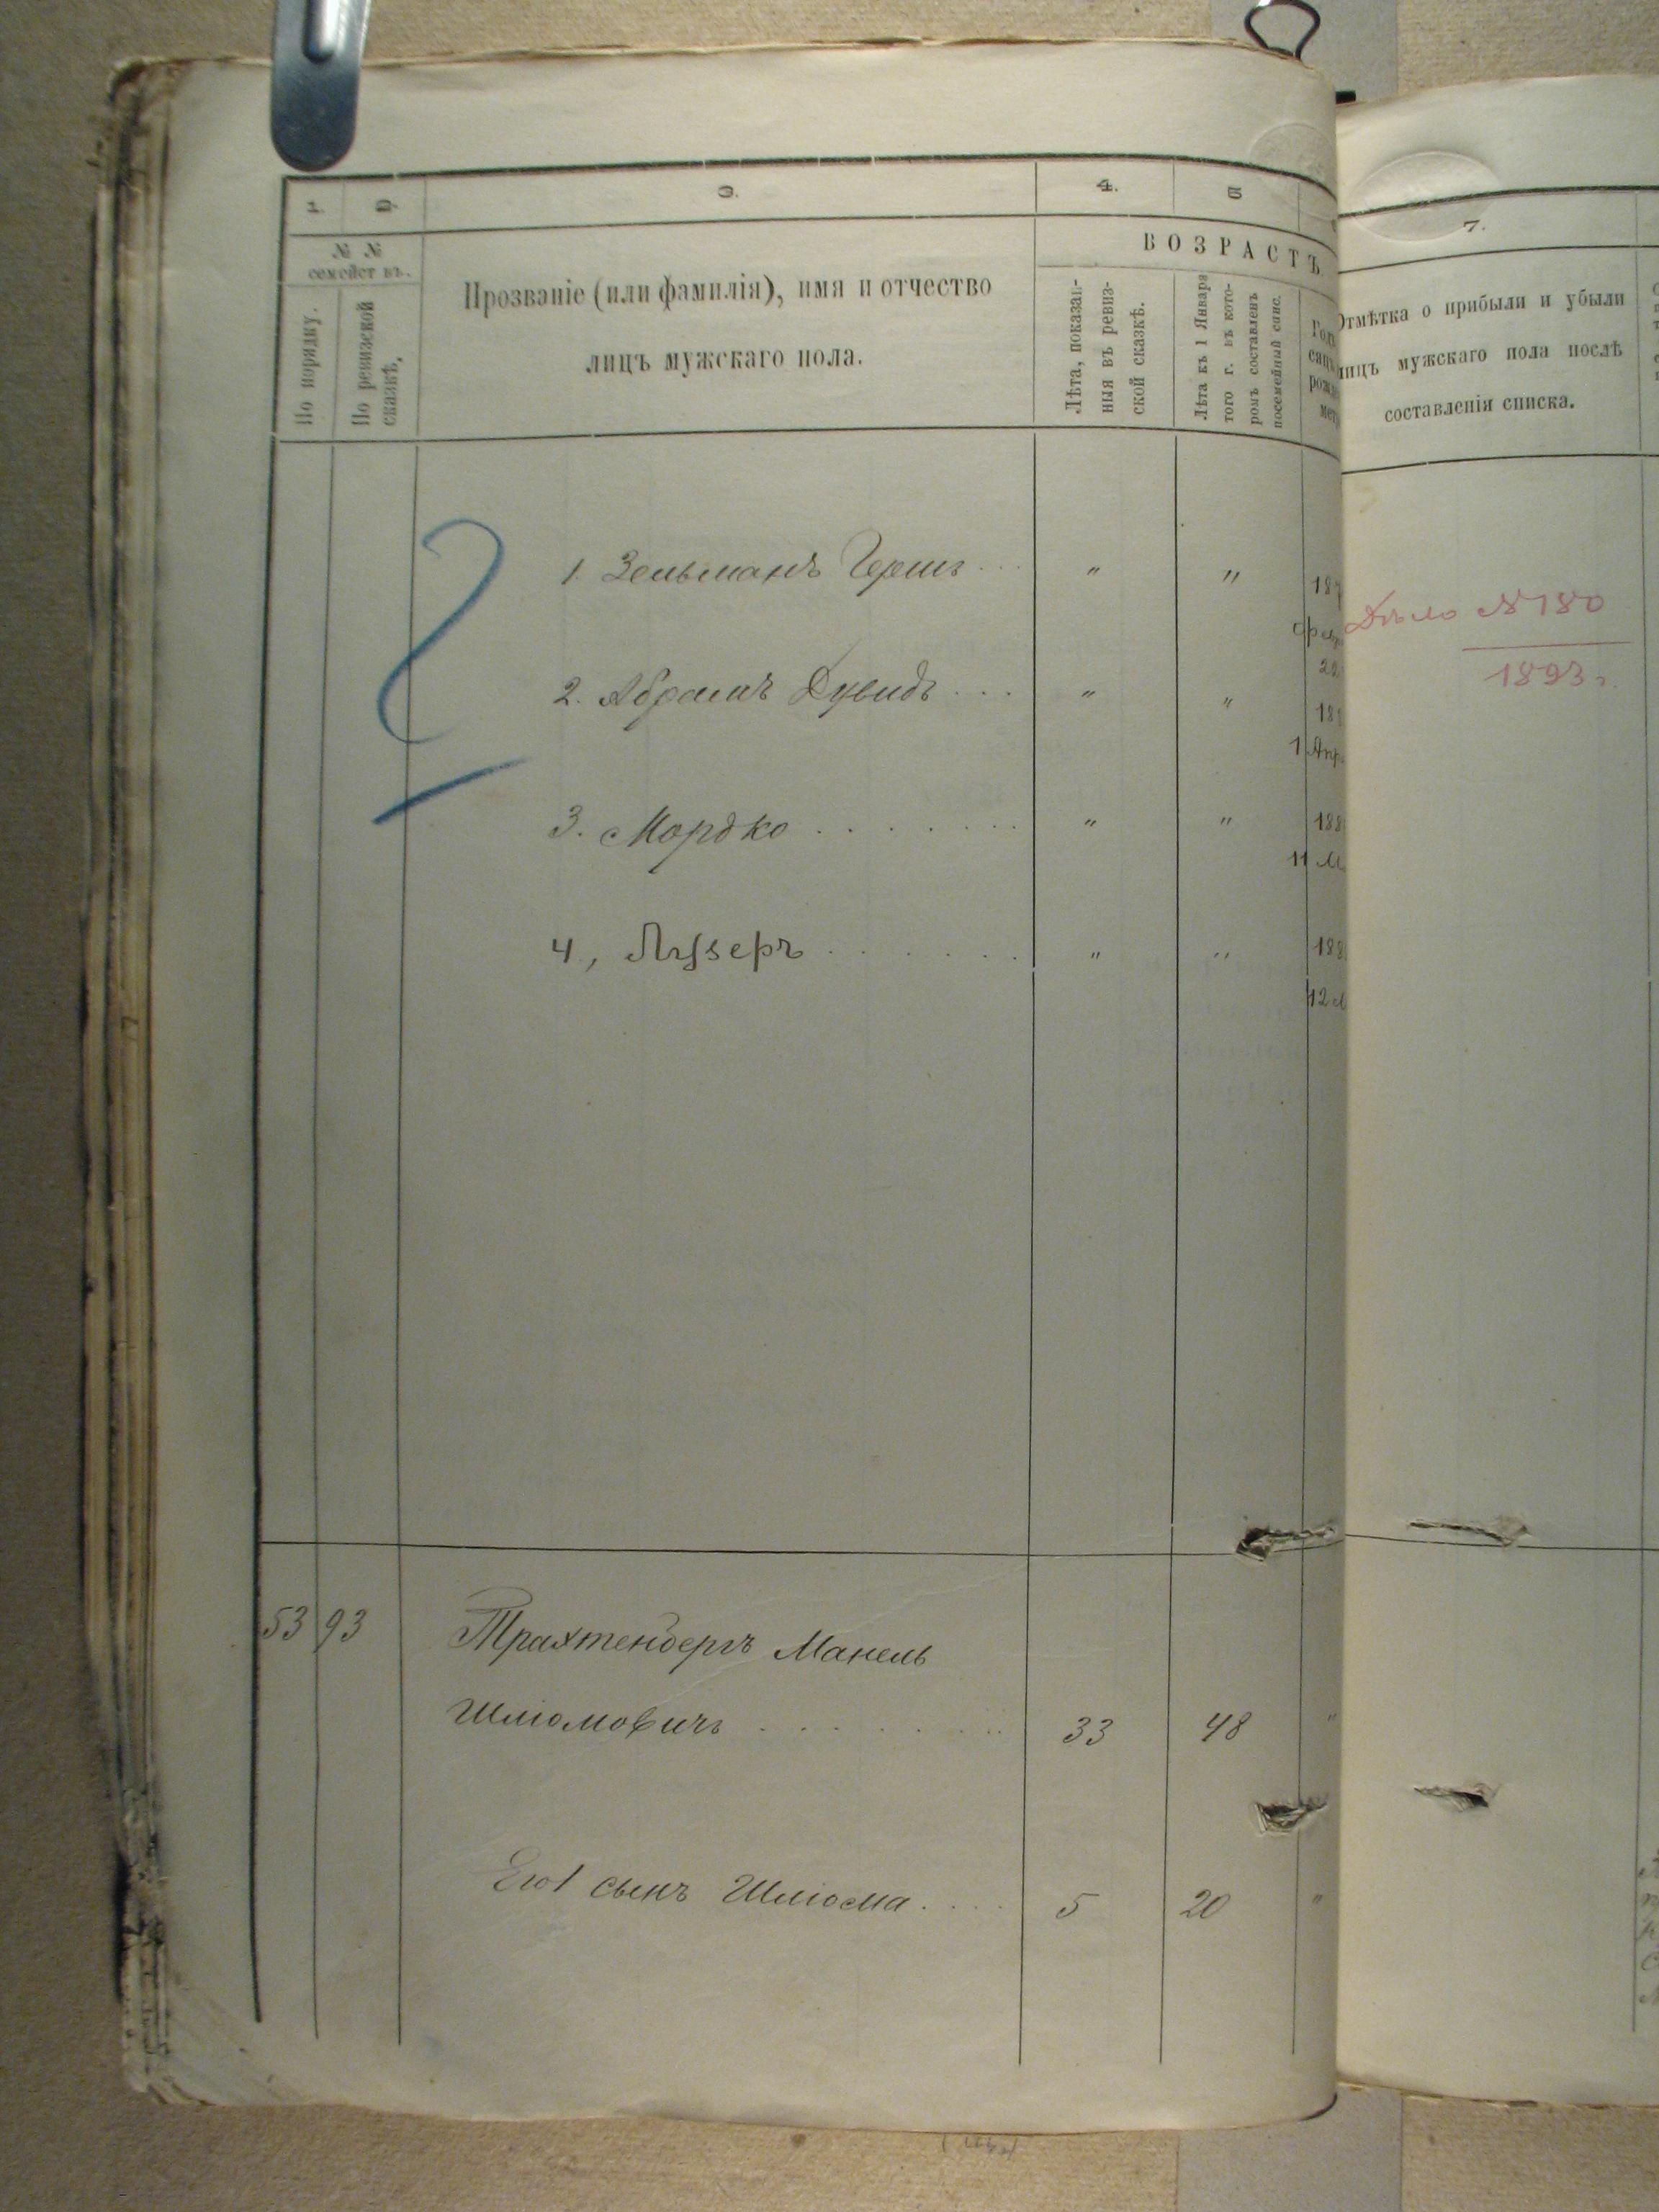 1. 2. 3. 4. 5
7.
№ №
семейств въ.
По порядку.
По ревизской
сказкѣ.
Прозваніе (или фамилія), имя и отчество
лицъ мужскаго пола.
ВОЗРАСТЪ
Лѣта, показан-
ныя въ ревиз-
ской сказкѣ.
Лѣта къ 1 Января
того г. въ кото-
ромъ составленъ
посемейный спис.
Отмѣтка о прибыли и убыли
лицъ мужскаго пола послѣ
составленія списка.
1. Зельманъ Гершъ . . . " "
Дѣло №180
1893 г.
2. Абрамъ Дувидъ . . . " "
1 Апр
3. Мордко . . . . . . . . " "
11 М
4, Лузеръ . . . . . . . " "
12
53 93 Трахтенбергъ Манель
Шліомовичъ . . . . . . . . . 33 48 "
Его 1 сынъ Шліома . . . . 5 20 "